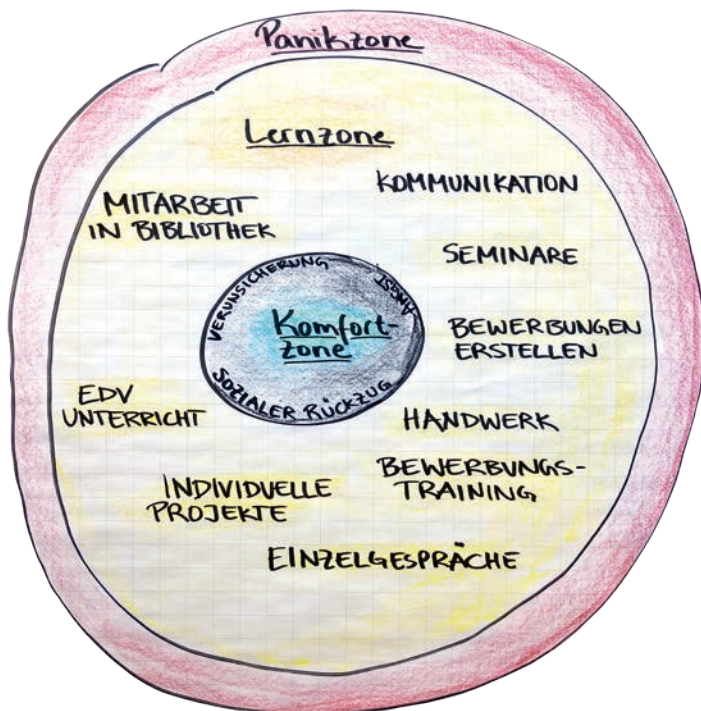 Panikzone
Lernzone
KOMMUNIKATION
MITARBEIT
IN BIBLIOTHEK
SEMINARE
VERUNSICHERUNG
ANGST
Komfort-
zone
SOZIALER RÜCKZUG
BEWERBUNGEN
ERSTELLEN
EDV
UNTERRICHT
HANDWERK
BEWERBUNGS-
TRAINING
INDIVIDUELLE
PROJEKTE
EINZELGESPRÄCHE